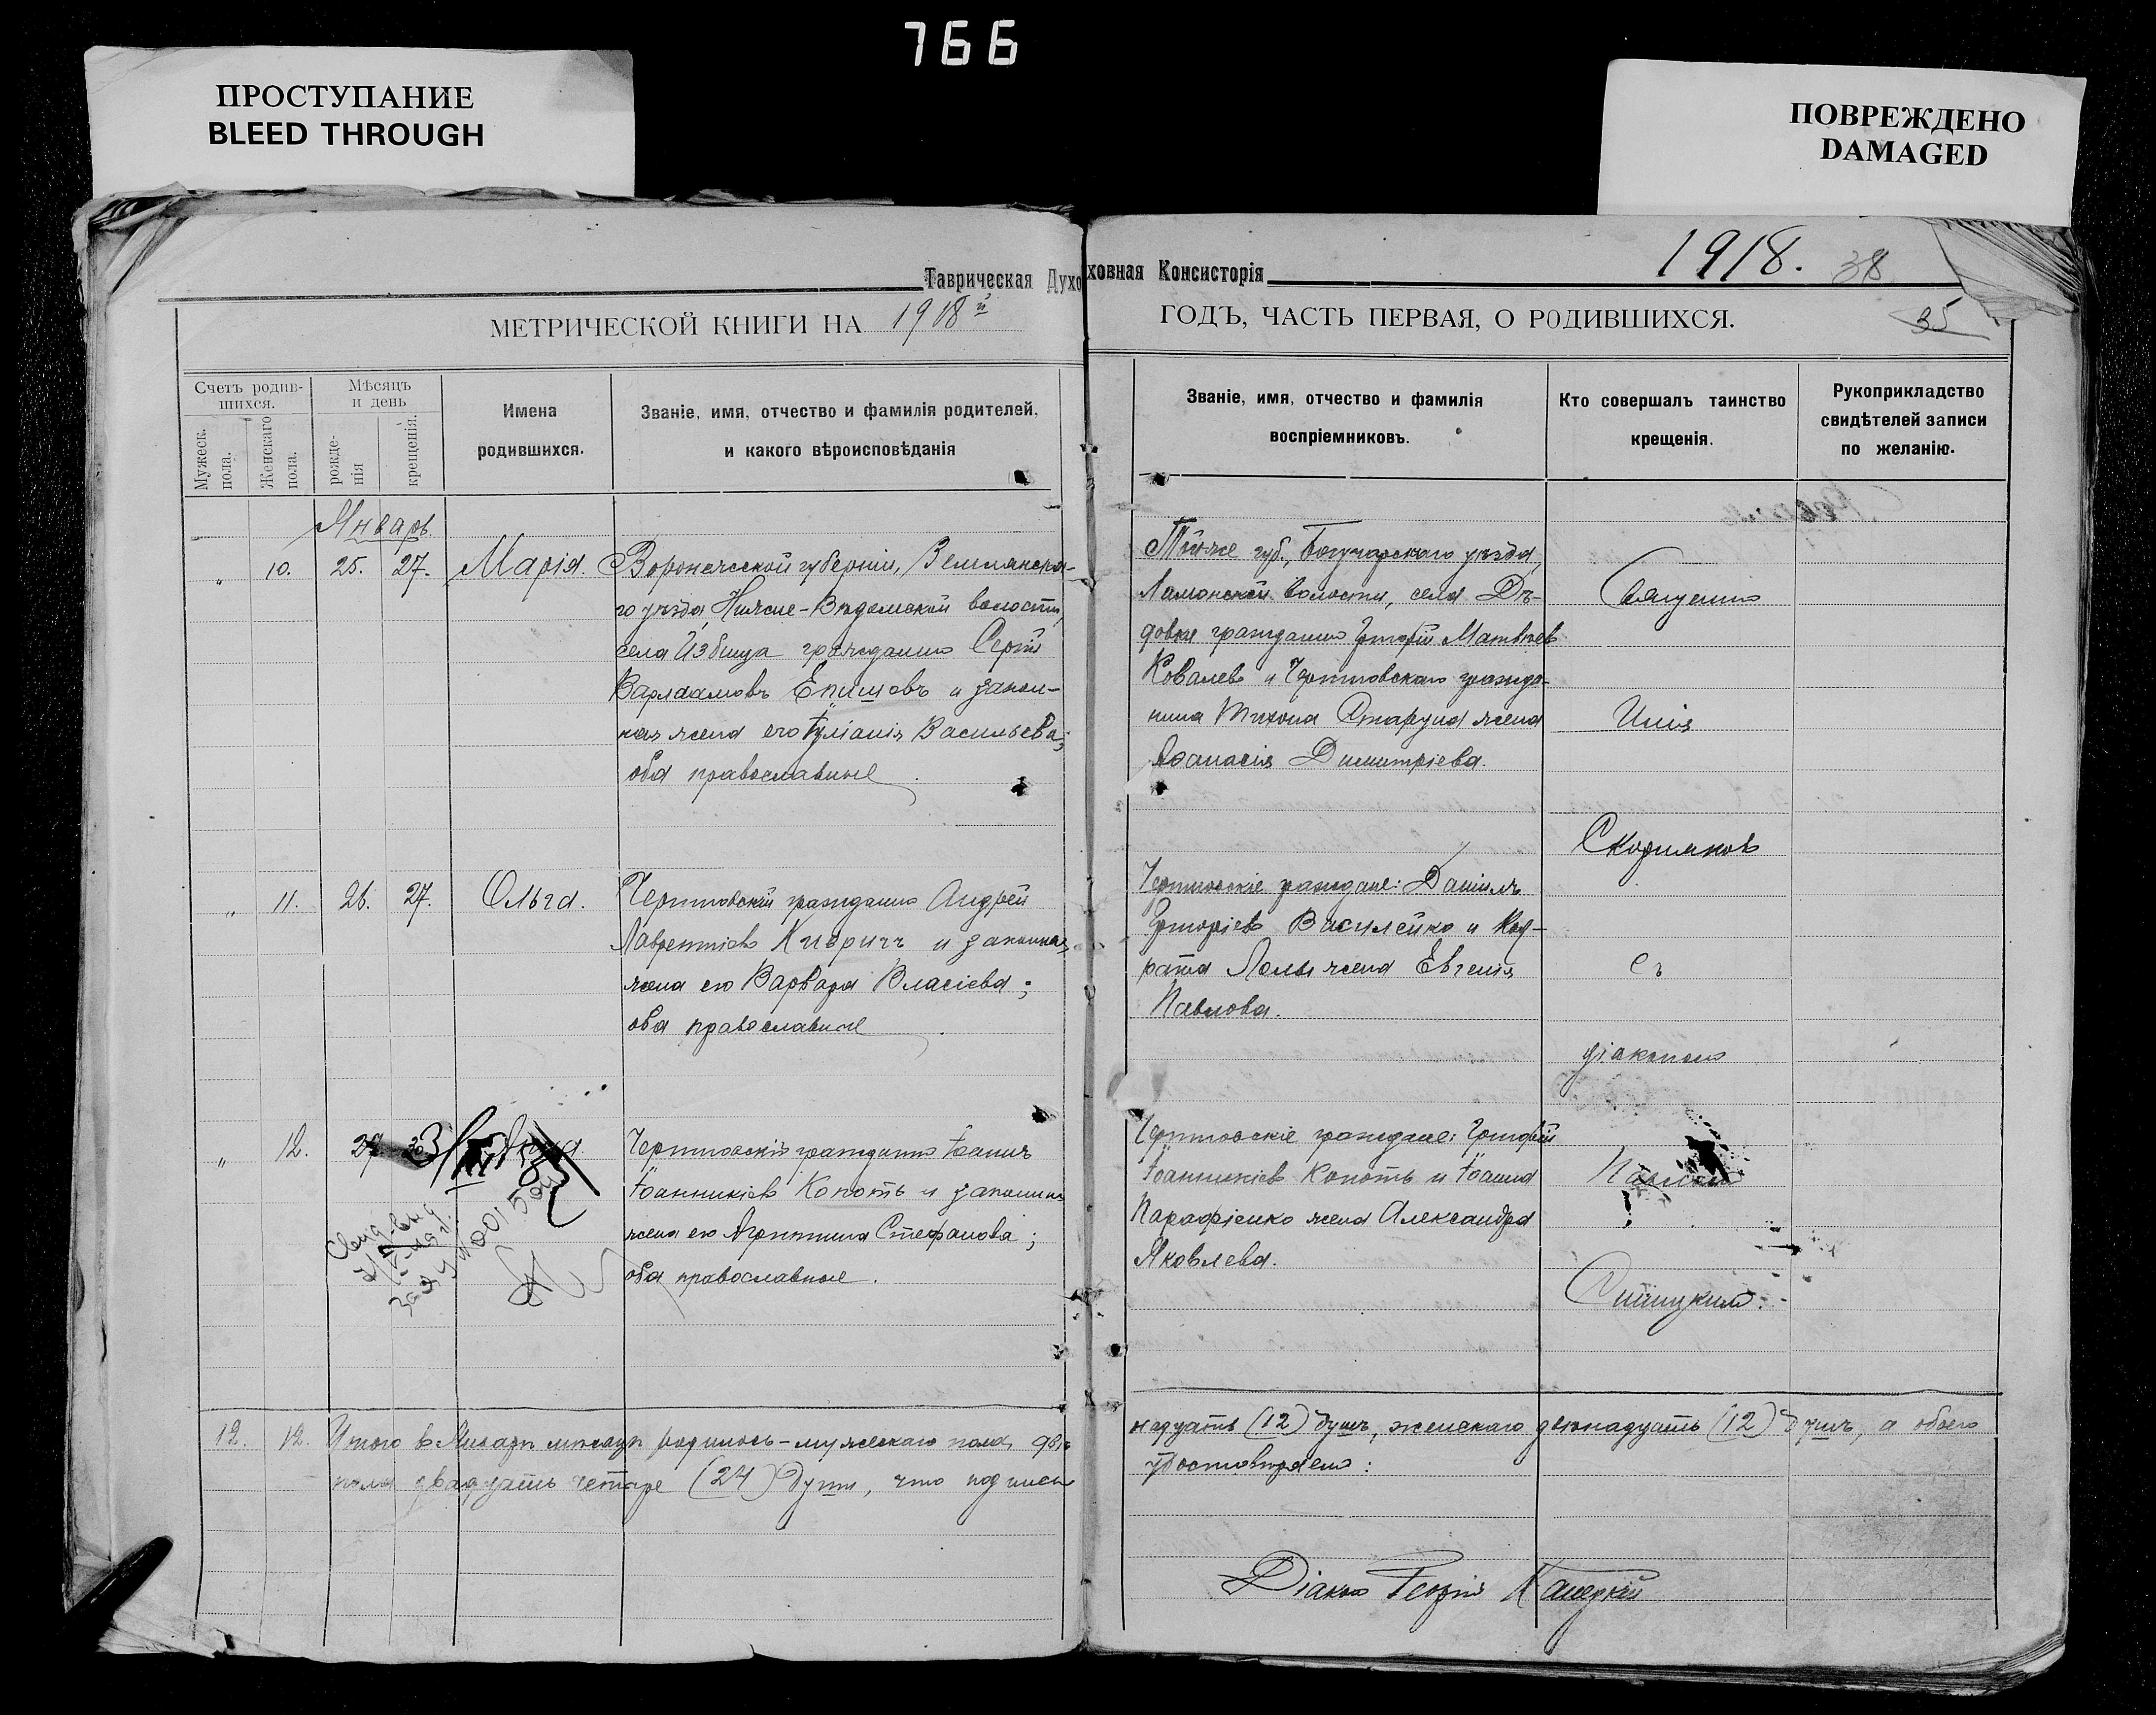 766
ПРОСТУПАНИЕ
BLEED THROUGH
ПОВРЕЖДЕНО
DAMAGED
Таврическая Духовная Консисторія
1918. 38
35
МЕТРИЧЕСКОЙ КНИГИ НА 1918й ГОДЪ, ЧАСТЬ ПЕРВАЯ, О РОДИВШИХСЯ.
Счетъ родив-
шихся.
Мужеск.
пола.
Женскаго
пола.
Мѣсяцъ
и день
рожде-
нія
крещенія.
Имена
родившихся.
Званіе, имя, отчество и фамилія родителей,
и какого вѣроисповѣданія
Званіе, имя, отчество и фамилія
воспріемниковъ.
Кто совершалъ таинство
крещенія.
Рукоприкладство
свидѣтелей записи
по желанію.
Январь
„ 10. 25. 27. Марія. Воронежской губерніи, Землянска-
го уѣзда, Нижне-Вѣдомской волости,
села Избища гражданинъ Сергій
Варлаамовъ Епишовъ и закон-
ная жена его Іуліанія Васильева;
оба православные
Той-же губ., Богучарскаго уѣзда,
волости, села Дѣ-
довки гражданинъ Григорій Матвѣев
Ковалевъ и гражда-
нина Тихона жена
Аѳанасія Димитріева.
Священно
„ 11. 26. 27. Ольга. гражданинъ Андрей
Лаврентіевъ и законная
жена его Варвара Власіева;
оба православные
граждане: Даніилъ
Григоріевъ Василейко и Код-
рата жена Евгенія
Павлова.
Скорняковъ
съ
діакономъ
„ 12. гражданинъ Іоаннъ
Іоанникіевъ Копоть и законная
жена его Агриппина Стефанова;
оба православные.
граждане: Григорій
Іоанникіевъ Копоть и Іоанна
Парафіенко жена Александра
Яковлева.
12. 12. Итого въ Январѣ мѣсяцѣ родилось - мужескаго пола двѣ-
надцать (12) душъ, женскаго двѣнадцать (12) душъ, а обоего
пола двадцать четыре (24) души, что подписью
удостовѣряемъ:
Діаконъ Георгій